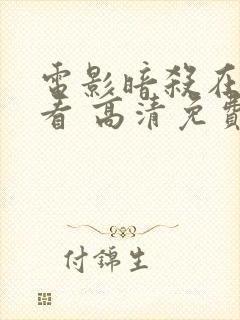 電影暗殺在
看 高清免費
付錦生